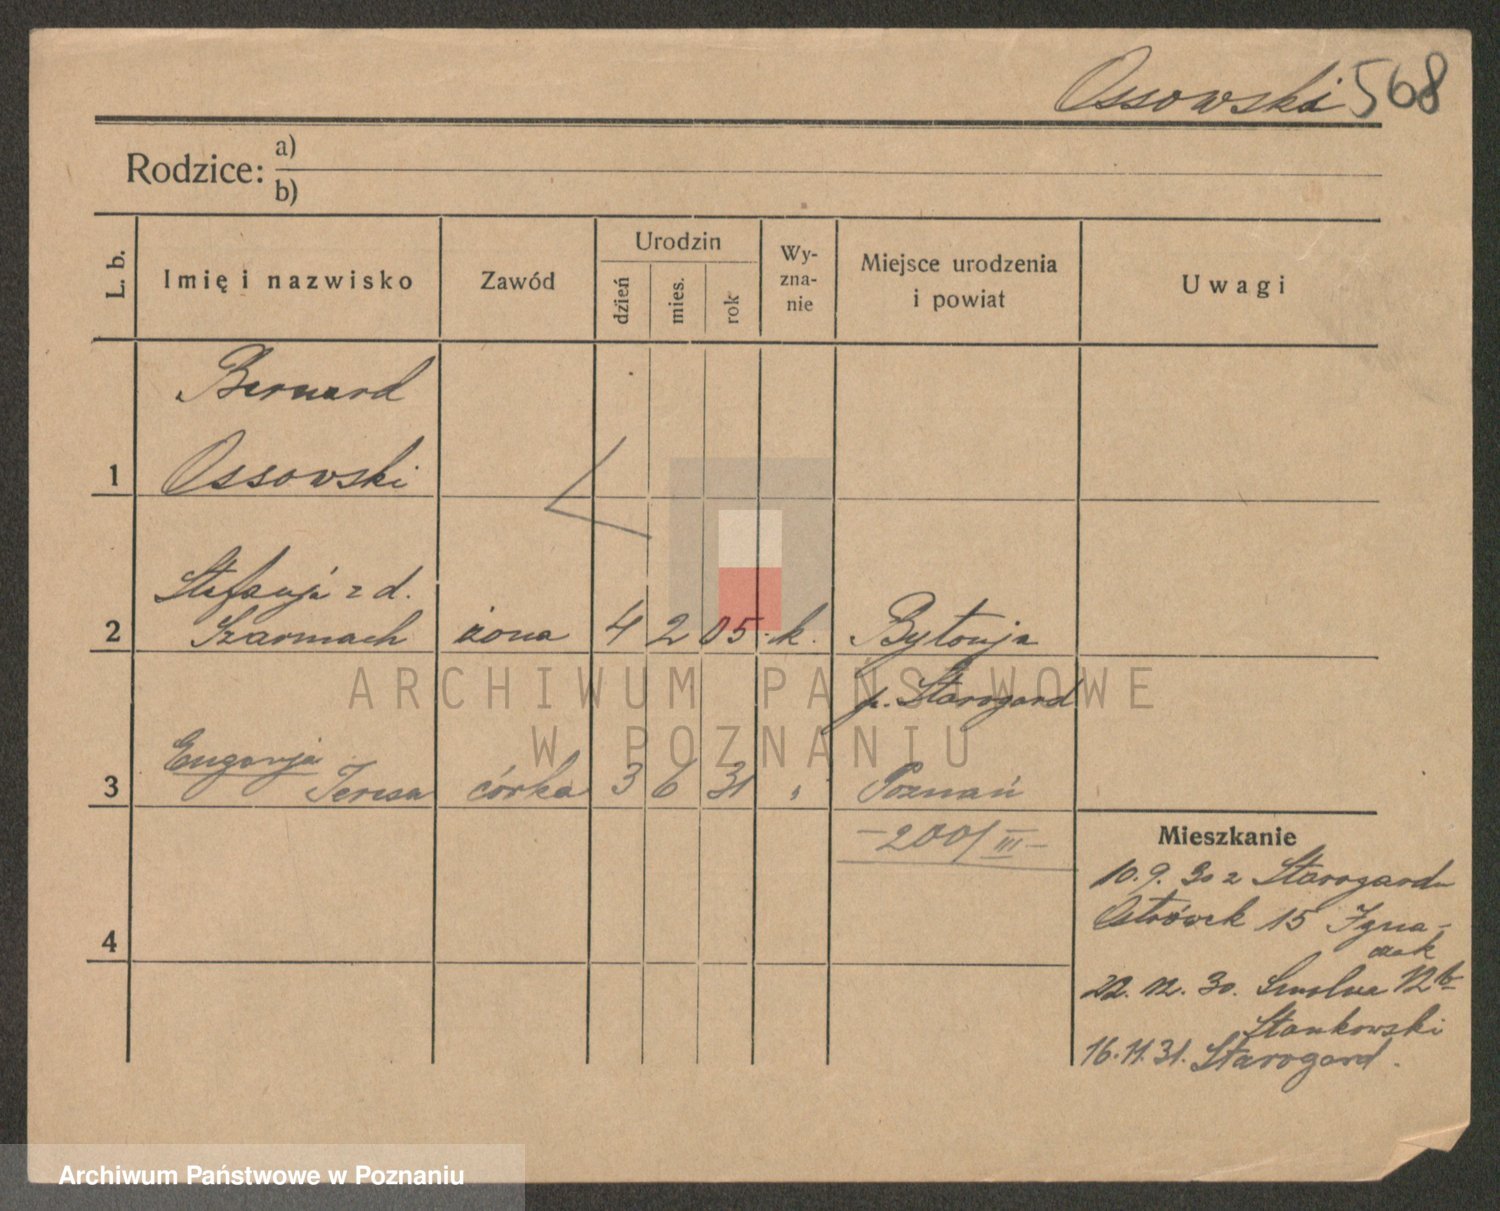 Ossowski 568
Rodzice: a)
b)
L. b.
Imię i nazwisko
Zawód
Urodzin
dzień
mies.
rok
Wy-
zna-
nie
Miejsce urodzenia
i powiat
Uwagi
Bernard
1 Ossowski
Stefanja z d.
2 Czarmach żona 4 2 05 k. Bytonja
p. Starogard
Eugenja
3 Teresa córka 3 6 31 " Poznań
— 200/III —
4
Mieszkanie
10.9.30 z Starogardu
Ostrówek 15 Igna-
czak
22.12.30. Smolna 12b
Stankowski
16.11.31. Starogard.
ARCHIWUM PAŃSTWOWE
W POZNANIU
Archiwum Państwowe w Poznaniu